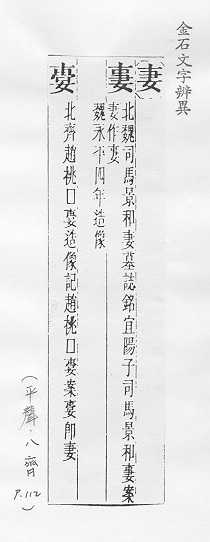 金石文字辨異
妻
妻
北魏司馬景和妻墓誌銘宜陽子司馬景和妻案
妻作妻
魏永平四年造像
北齊趙桃口妻造像記趙桃口妻案妻即妻
(平聲·八齊 P.112)